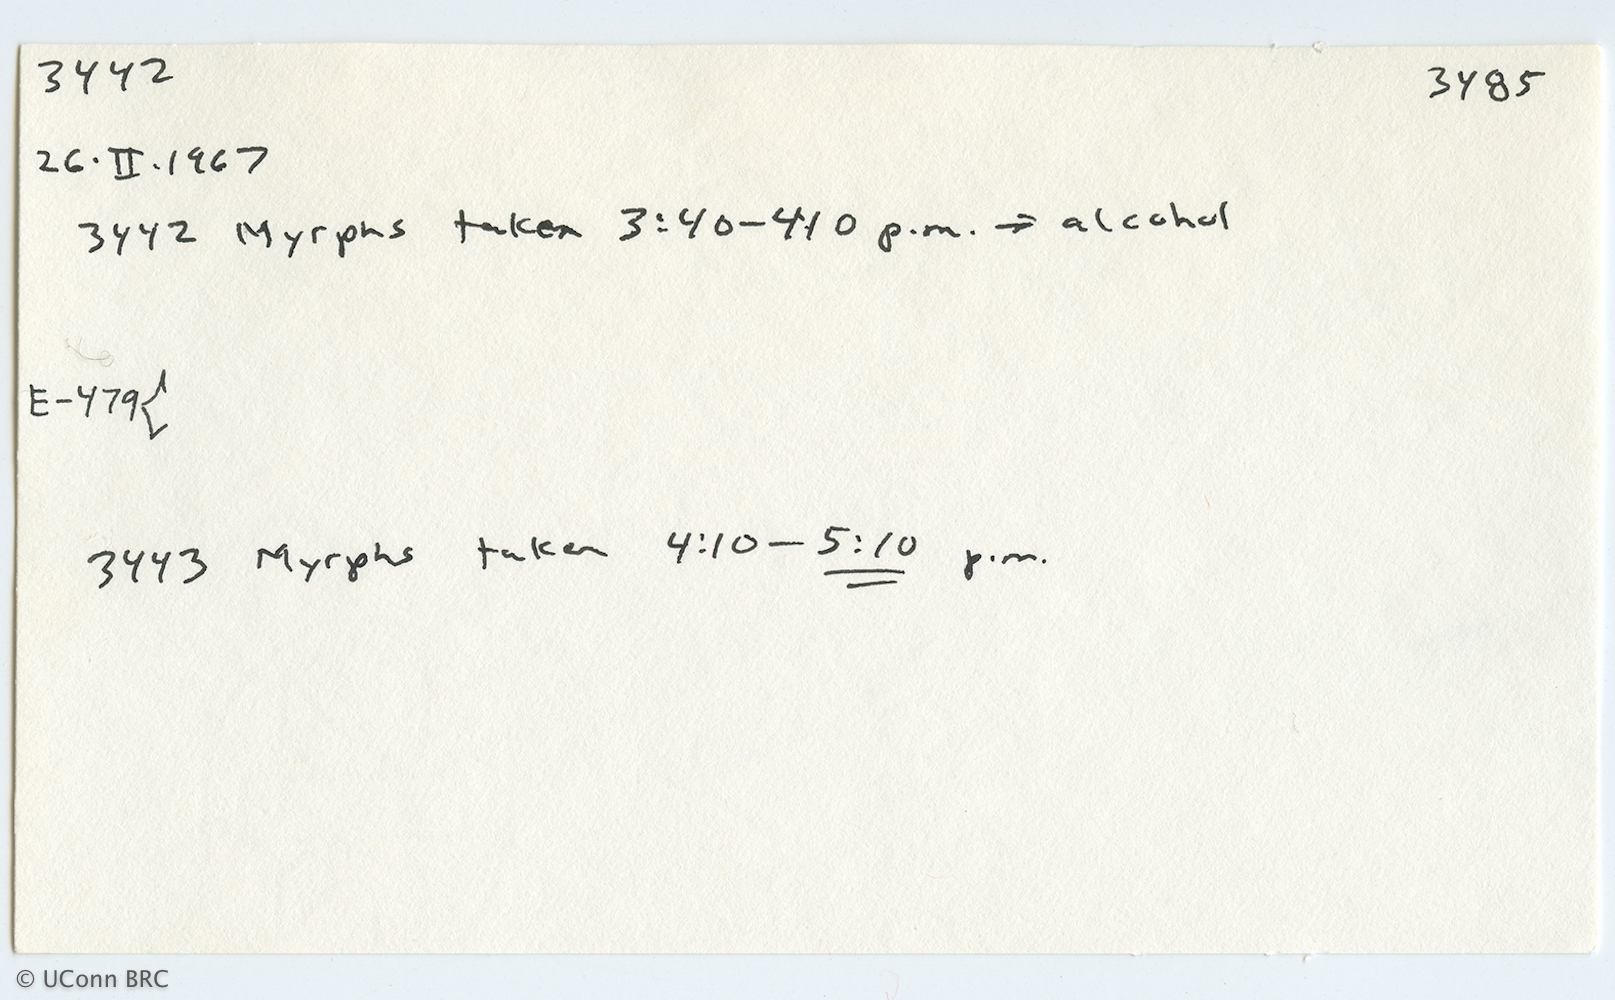 3442 3485
26.II.1967
3442 Myrphs taken 3:40-4:10 p.m. → alcohol
E-479{
3443 Myrphs taken 4:10-5:10 p.m.
© UConn BRC